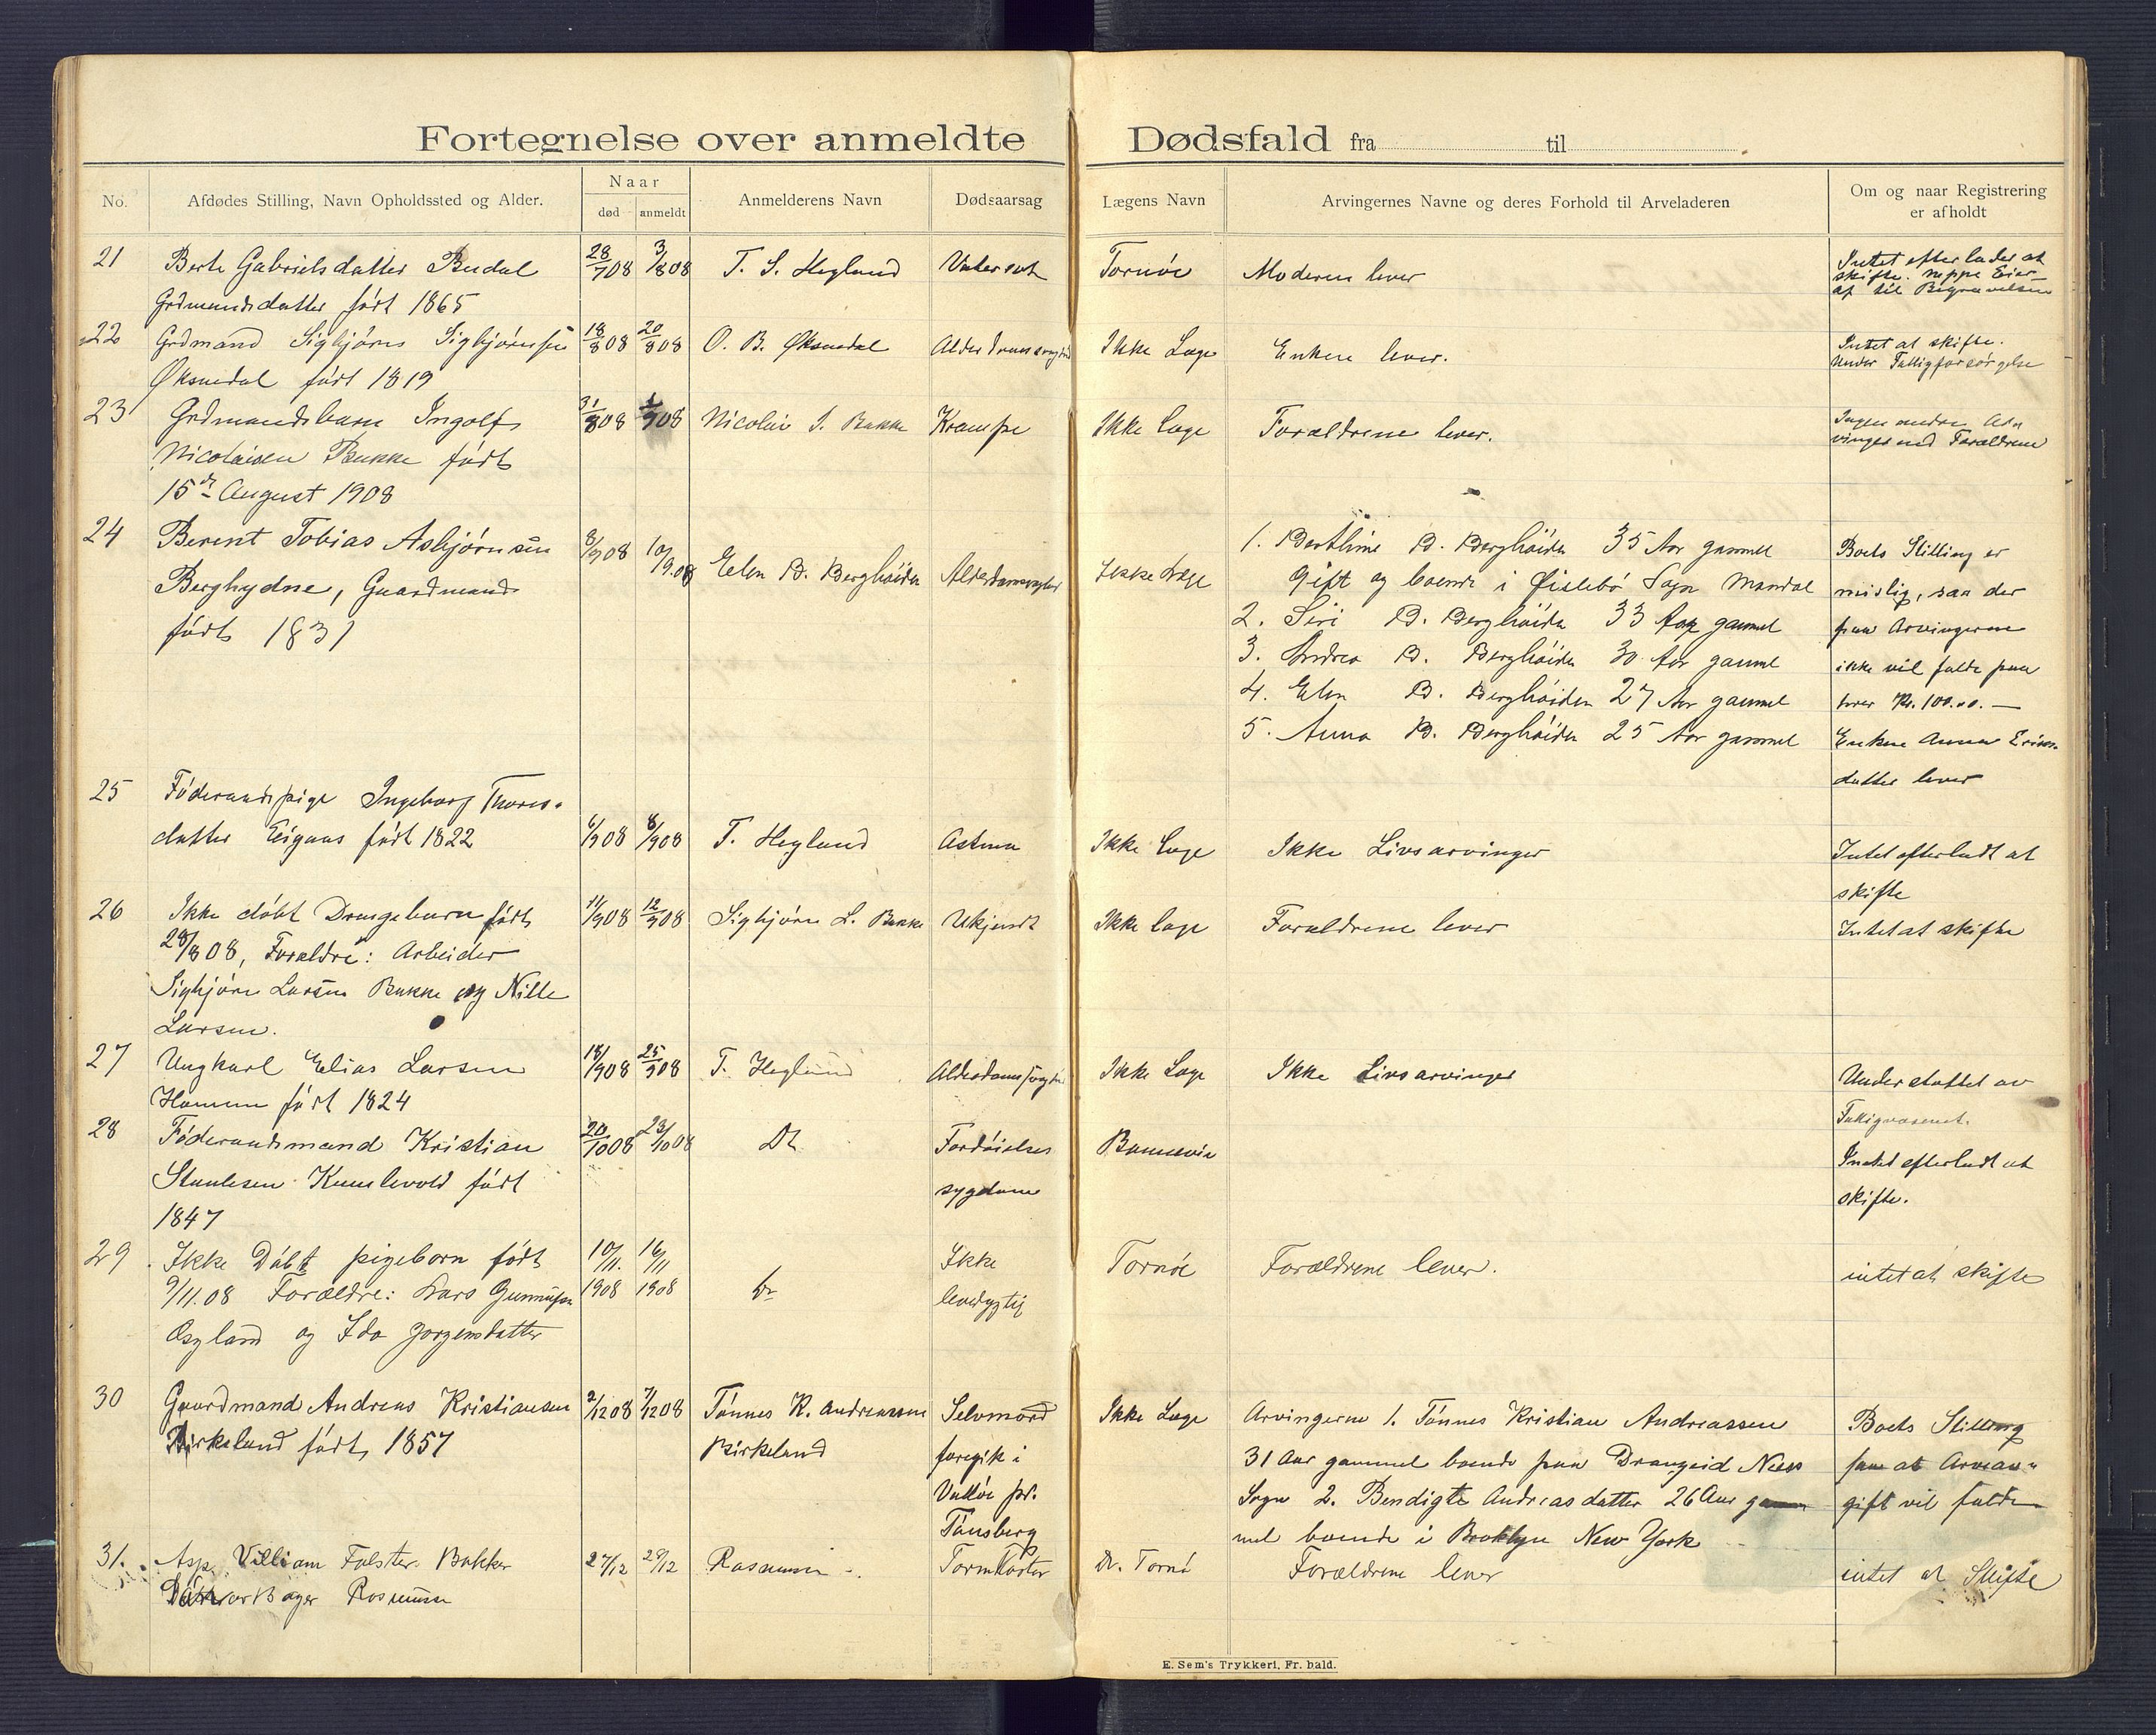 Fortegnelse over anmeldte Dødsfald fra til
No.
Afdødes Stilling, Navn Opholdssted og Alder.
Naar
død anmeldt
Anmelderens Navn
Dødsaarsag
Lægens Navn
Arvingernes Navne og deres Forhold til Arveladeren
Om og naar Registrering
er afholdt
21 Berte Gabrielsdatter 28/7 08 3/8 08 T. S. Heglund Vatersot Tornøe Moderen lever
Grdmandsdatter født 1865
Intet efterlader at
skifte. neppe Eier
af til Begravelsen
22 Grdmand Sigbjørn Sigbjørnsen 18/8 08 20/8 08 O. B. Øksendal Alderdomssvaghed Ikke Læge Enken lever.
Øksendal født 1819
Intet at skifte.
Under Fattigforsørgelse
23 Grdmandsbarn Ingolf 31/8 08 1/9 08 Nicolai S. Bakke Krampe Ikke Læge Forældrene lever.
Nicolaisen Bakke født
15de August 1908
Ingen andre Ar-
vinger end Forældrene
24 Berent Tobias Asbjørnsen 8/9 08 10/9.08 Elen B. Berghöiden Alderdomssvaghed Ikke Læge
Berghydne, Gaardmand
født 1831
1. Berthine B. Berghöiden 35 Aar gammel
Gift og boende i Øislebø Sogn Mandal
2. Siri B. Berghöiden 33 Aar gammel
3. Andrea B. Berghöiden 30 Aar gammel
4. Elen B. Berghöiden 27 Aar gammel
5. Anna B. Berghöiden 25 Aar gammel
Boets Stilling er
mislig, saa der
paa Arvingerne
ikke vil falde paa
hver Kr. 100.00.—
Enken Anna
datter lever
25 Føderaadspige Ingeborg Thores-
datter Eigaas født 1822 6/9 08 8/9 08 T. Heglund Astma Ikke Læge Ikke Livsarvinger Intet efterladt at
skifte
26 Ikke døbt Drengebarn født 11/9 08 12/9 08 Sigbjørn L. Bakke Ukjendt Ikke Læge Forældrene lever Intet at skifte
28/8 08, Forældre: Arbeider
Sigbjørn Larsen Bakke og Nille
Larsen.
27 Ungkarl Elias Larsen 18/9 08 25/9 08 T. Heglund Alderdomssvaghed Ikke Læge Ikke Livsarvinger Understøttet av
Homme født 1824 Fattigvæsenet.
28 Føderaadsmand Kristian 20/10 08 23/10 08 Do Fordøielses
Staalesen Kumlevold født sygdom
1847
Intet efterladt at
skifte.
29 Ikke Døbt pigebarn født 10/11. 16/11 Ikke Tornøe Forældrene lever. intet at skifte
9/11.08 Forældre: Lars Gunnufsen 1908 1908 Do levedygtig
Øsyland og Ida Jorgensdatter
30 Gaardmand Andreas Kristiansen 2/12 08 7/12 08 Tønnes K. Andreassen Selvmord Ikke Læge
Birkeland født 1857 Birkeland foregik i
Valløe pr.
Tønsberg
Arvingerne 1. Tønnes Kristian Andreassen
31 Aar gammel boende paa Drangeid Næs
Sogn 2. Bendigte Andreasdatter 26 Aar gam
mel boende i Broklyn New York
Boets Stilling
saa at Arveav-
gift vil falde
31. Asp. Villiam Falster Bakker 27/12 29/12 Rasmussen Dr. Tornø Forældrene lever intet at Skifte
Bager Rasmussen
E. Sem's Trykkeri, Fr. hald.